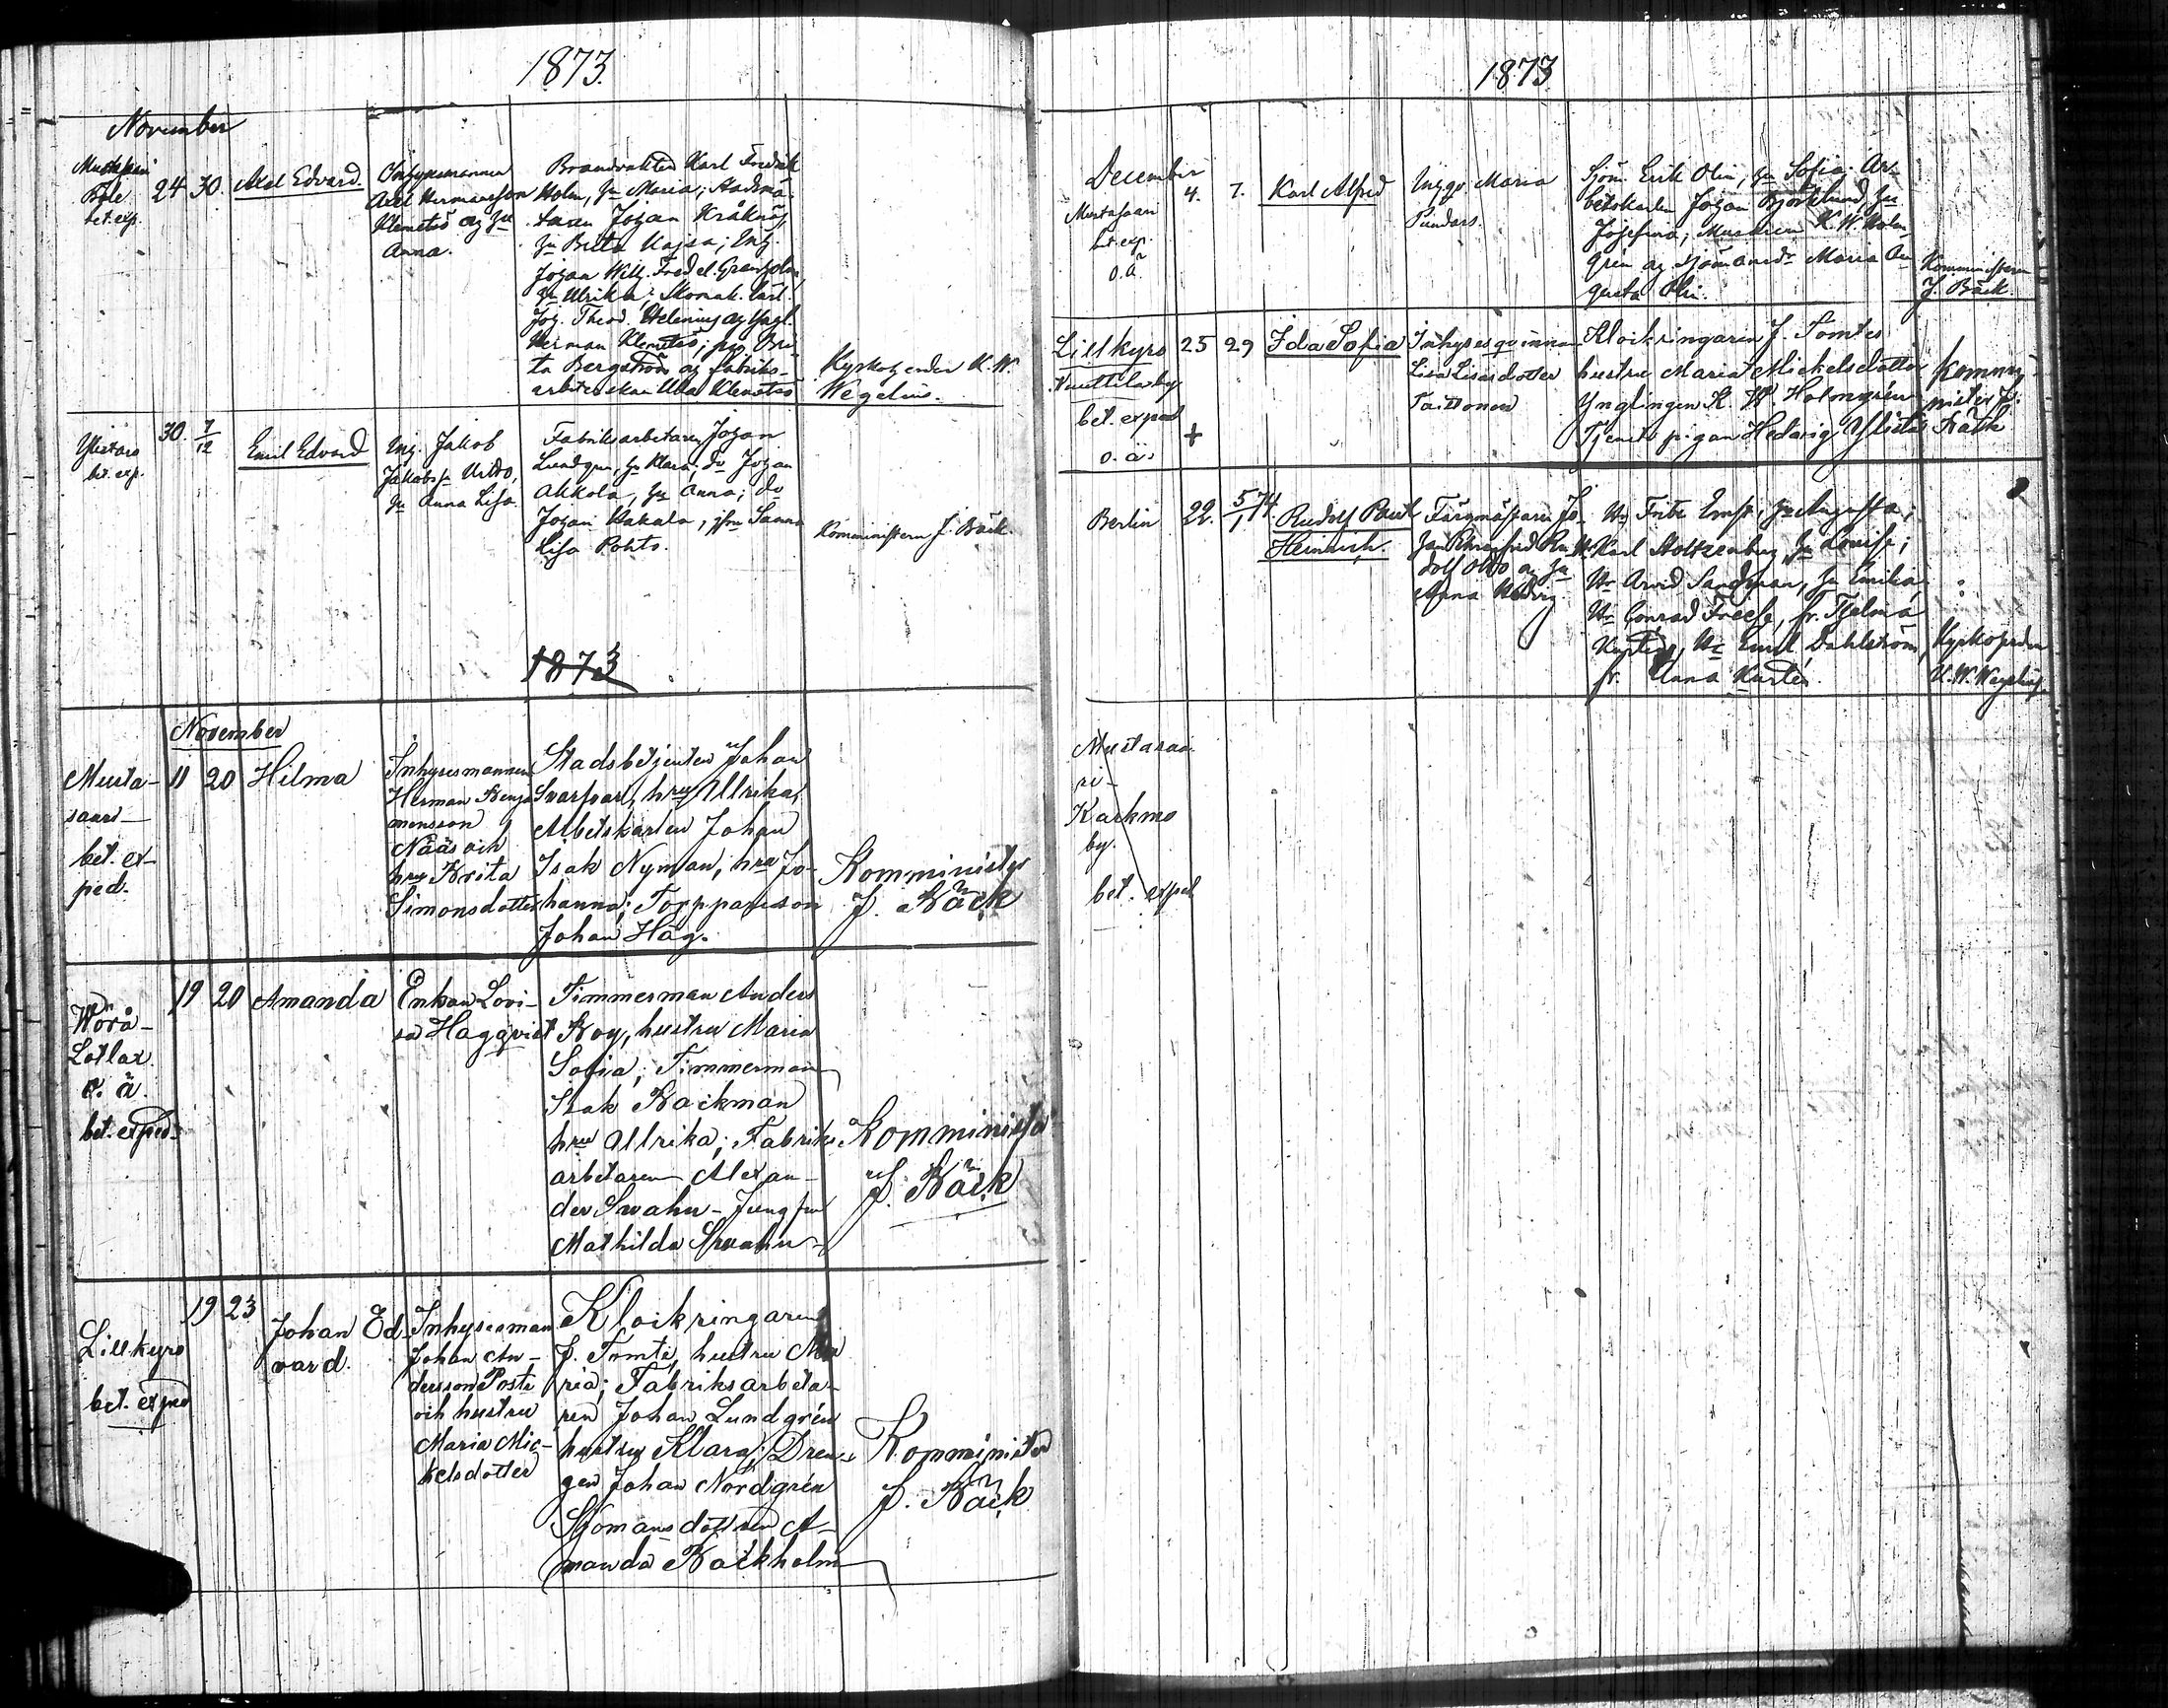 1873.
November
Mustasaari
Böle
bet. exp.
24 30. Axel Edvard.
Inhysesmannen
Axel Hermansson
Klemetsö og hu
Anna.
Brandvakten Karl Fredrik
Holm, hu Maria; Stadsmå-
laren Johan Kråknäs,
hu Brita Kajsa; Inh.
Johan Wilh. Fred. el. Granholm,
hu Ulrika; Skomak. lärl.
Joh. Theod. Helenius og
Herman Klemetsö; pig. Bri-
ta Bergström og fabriks-
arbeterskan Ulla Klemetsö
Kyrkoherden K. W.
Wegelius.
Ylistaro
bet. exp.
30. 7/12 Emil Edvard
Inh. Jakob
Jakobss
hu Anna Lisa.
Fabriksarbetaren Johan
Lundgren, hu Klara; do Johan
Akkola, hu Anna; do
Johan Kakala, jfru Sanna
Lisa Pohto.
Komministern J. Bäck.
1873
November
Musta-
saari
bet. ex-
ped.
11 20 Hilma
Inhysesmannen
Herman Benja
monsson
Nääs och
hru Brita
Simonsdotter
Stadsbetjenten Johan
Svarfvar, hru Ullrika,
Arbetskarlen Johan
Isak Nyman, hru Jo-
hanna; Torppareson
Johan Häg.
Komminister
J. Bäck
Wörå-
Lotlax
o. ä.
bet. exped.
19 20 Amanda
Enkan Lovi-
sa Hagqvist
Timmerman Anders
Boy, hustru Maria
Sofia; Timmerman
Isak Backman
hru Ullrika; Fabriks
arbetaren Alexan-
der Svahn - Jungfru
Mathilda Svahn
Komminister
J. Bäck
Lillkyro
bet. exped
19 23 Johan Ed-
vard.
Inhysesman
Johan An-
dersson Poste
och hustru
Maria Mic-
kelsdotter
Klockringaren
J. Tomte, hustru Ma
ria; Fabriksarbeta-
ren Johan Lundgrén
hustru Klara; Dren-
gen Johan Nordgrén
Sjömansdottren A-
manda Backholm
Komminister
J. Bäck
1873
December
Mustasaari
bet. exp.
o. ä.
4. 7. Karl Alfred
Inhqv. Maria
Pundars.
Sjöm. Erik Olin, hu Sofia; Ar-
betskarlen Johan Björklund, hu
Josefina; Musikern K. W. Holm-
grén og sjömansdr Maria Au-
gusta Olin.
Komministern
J. Bäck.
Lillkyro
Nuuttila by
bet. exped
o. ä.
25 29 Ida Sofia
+
Inhysesqvinnan
Lisa Lisasdotter
Taittonen
Klockringaren J. Tomtes
hustru Maria Mickelsdotter
Ynglingen K. W Holmgrén
Tjenstepigan Hedvig Ylistalo
Kommi-
nister J.
Bäck
Berlin
22. 5/1 74. Rudolf Paul
Heinrich.
Färgmästaren Jo-
han Ehrenfried Ru-
dolf Otto og hu
Anna Hedvig.
Hr Fritz Ernst, hu Augusta;
Hr Karl Stoltzenburg, hu Louise;
Hr Arvid Sandman, hu Emilia;
Hr Conrad Freese, fr. Hjelma
Kurtén, Hr Emil Dahlström,
fr. Anna Kurtén.
Kyrkoherden
K. W. Wegelius.
Mustasaa-
ri-
Karkmo
by.
bet. exped